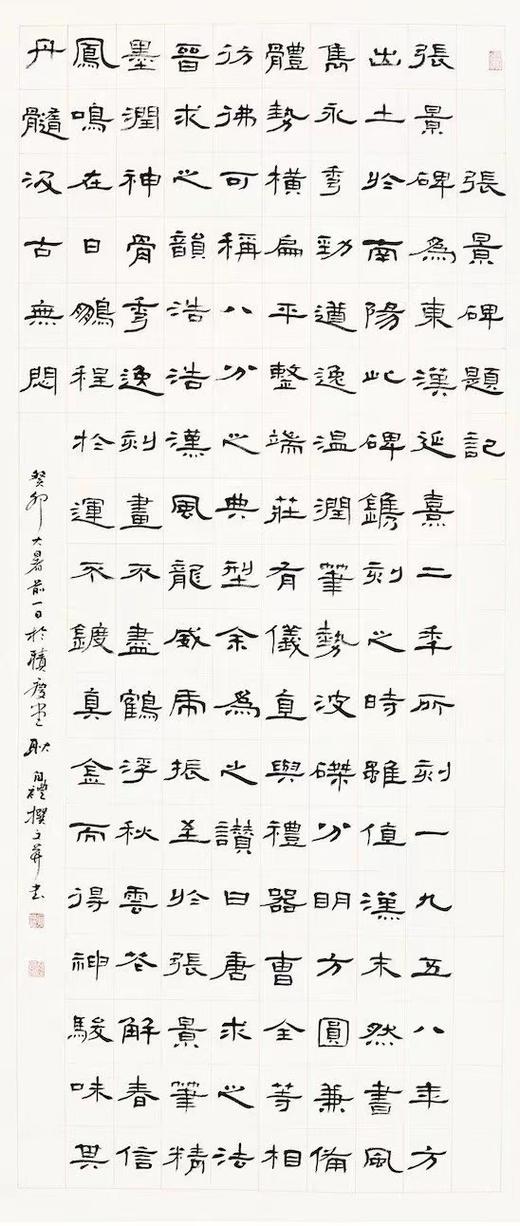 張景碑題記
張景碑為東漢延熹二年所刻一九五八年方
出土於南陽此碑鐫刻之時雖值漢末然書風
雋永秀勁遒逸溫潤筆勢波磔分明方圓兼備
體勢橫扁平整端莊有儀直與禮器曹全等相
彷彿可稱八分之典型余為之讚曰唐求之法
晉求之韻浩浩漢風龍威虎振至於張景筆精
墨潤神骨秀逸刻畫不盡鶴浮秋雲花解春信
鳳鳴在日鵬程於運不鍍真金而得神駿味其
丹髓汲古無悶
癸卯大暑前一日於堂耿自禮撰文并書